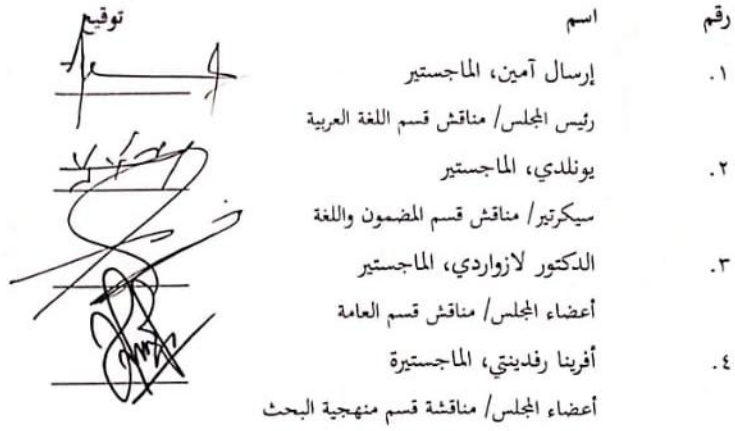 رقم اسم توقيع
١. إرسال آمين، الماجستير
رئيس المجلس/ مناقش قسم اللغة العربية
٢. يونلدي، الماجستير
سيكرتير/ مناقش قسم المضمون واللغة
٣. الدكتور لازواردي، الماجستير
أعضاء المجلس/ مناقش قسم العامة
٤. أفرينا رفدينتي، الماجستيرة
أعضاء المجلس/ مناقشة قسم منهجية البحث